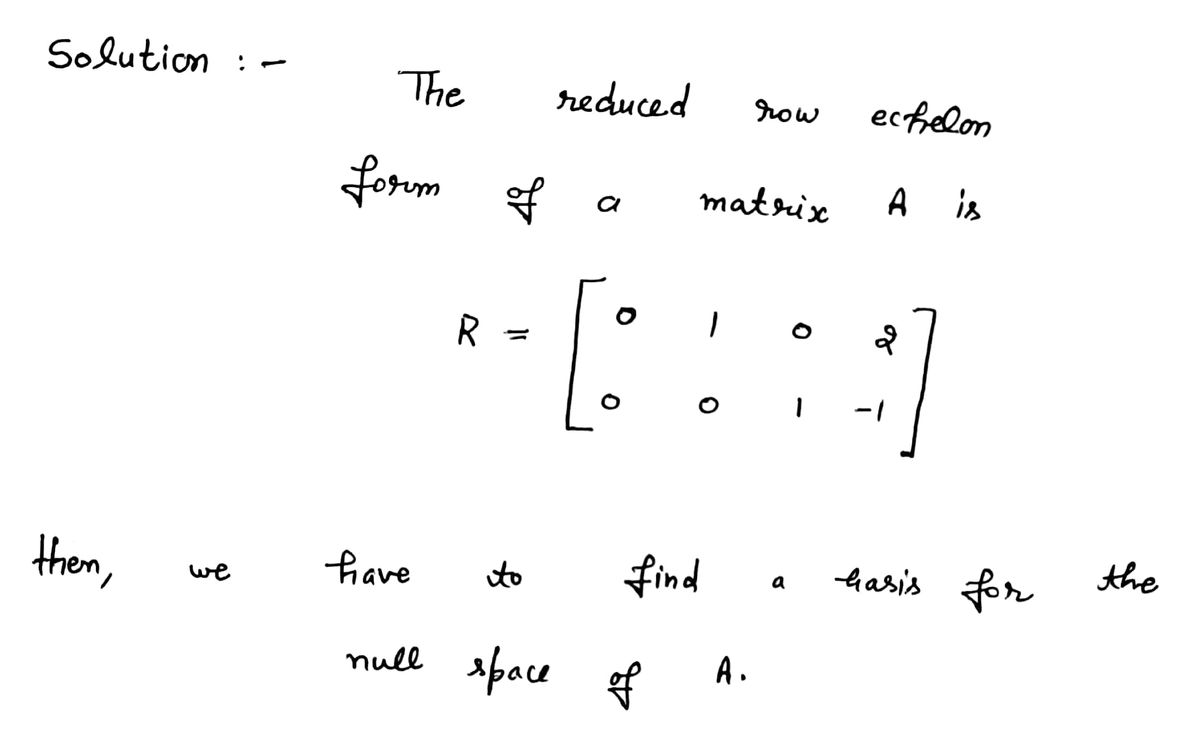 Solution :-
The reduced row echelon
form of a matrix A is
R = [ 0 1 0 2
0 0 1 -1 ]
then, we have to find a basis for the
null space of A.